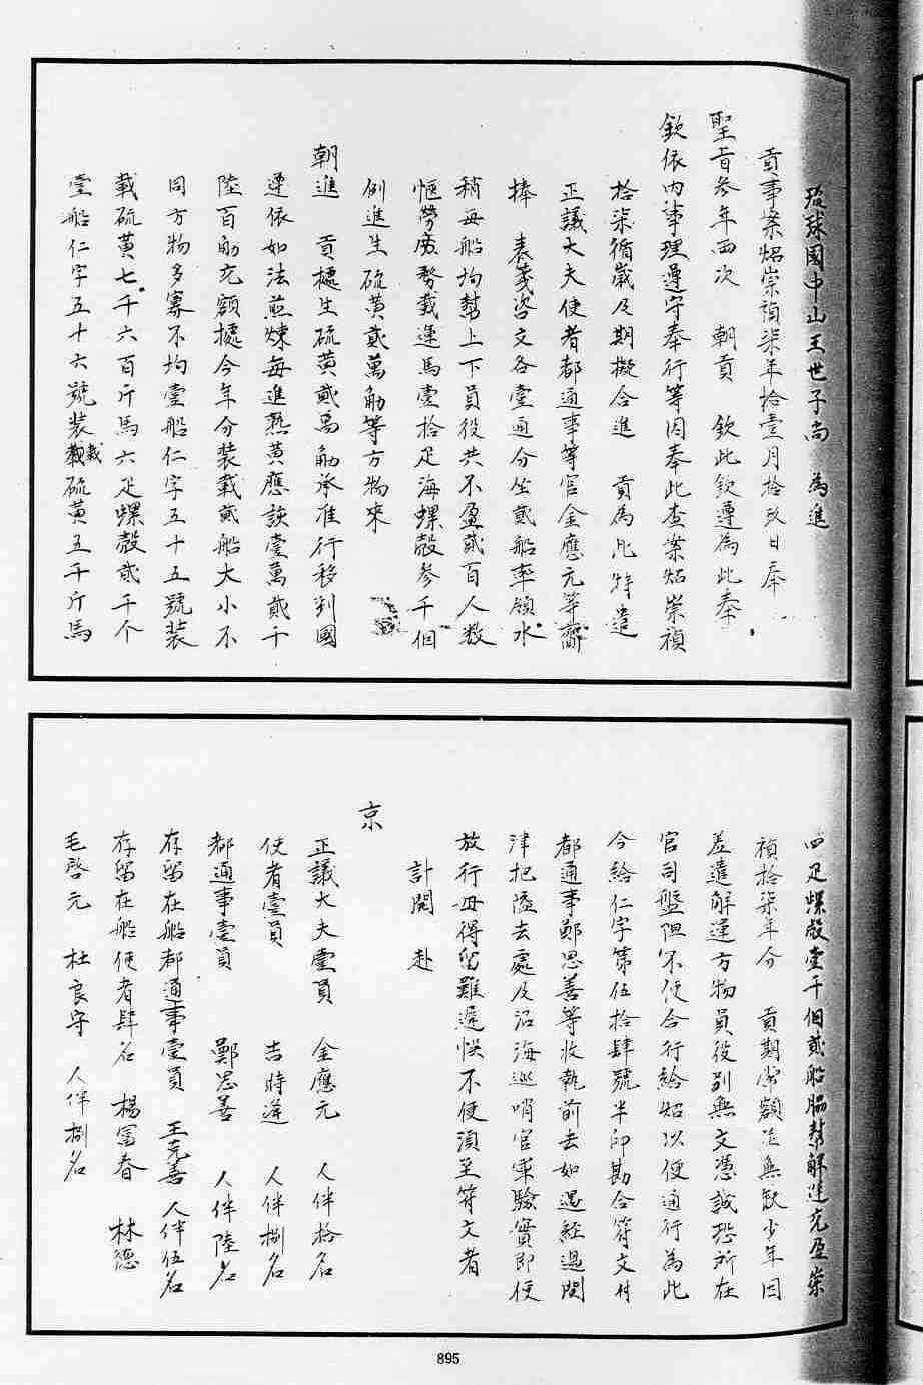 琉球國中山王世子尚　為進
貢事案炤崇禎柒年拾壹月拾玖日奉
聖旨參年兩次　朝貢　欽此欽遵為此奉
欽依內事理遵守奉行等因奉此查案炤崇禎
拾柒循歲及期擬合進　貢為此特遣
正議大夫使者都通事等官金應元等齎
捧　表箋咨文各壹通分坐貳船率領水
稍每船均幫上下員役共不盈貳百人數
恇勞廣務載運馬壹拾疋海螺殼參千個
例進生硫黃貳萬觔等方物來
朝進　貢據生硫黃貳萬觔承准行移到國
遵依如法煎煉每進熟黃應該壹萬貳千
陸百觔充額據今年分裝載貳船大小不
同方物多寡不均壹船仁字五十五號裝
載硫黃七千六百斤馬六疋螺殼貳千个
壹船仁字五十六號裝載硫黃五千斤馬
四疋螺殼壹千個貳船協幫解進充盈崇
禎拾柒年分　貢期常額並無缺少年因
差遣解運方物員役別無文憑誠恐所在
官司盤阻不便合行給炤以便通行為此
今給仁字第伍拾肆號半印勘合符文付
都通事鄭思善等收執前去如遇經過關
津把隘去處及沿海巡哨官軍驗實即便
放行毋得留難遲悞不便須至符文者
計開　赴
京
正議大夫壹員　金應元　人伴拾名
使者壹員　吉時逢　人伴捌名
都通事壹員　鄭思善　人伴陸名
存留在船都通事壹員　王克善　人伴伍名
存留在船使者肆名　楊富春　林德
毛啓元　杜良守　人伴捌名
895